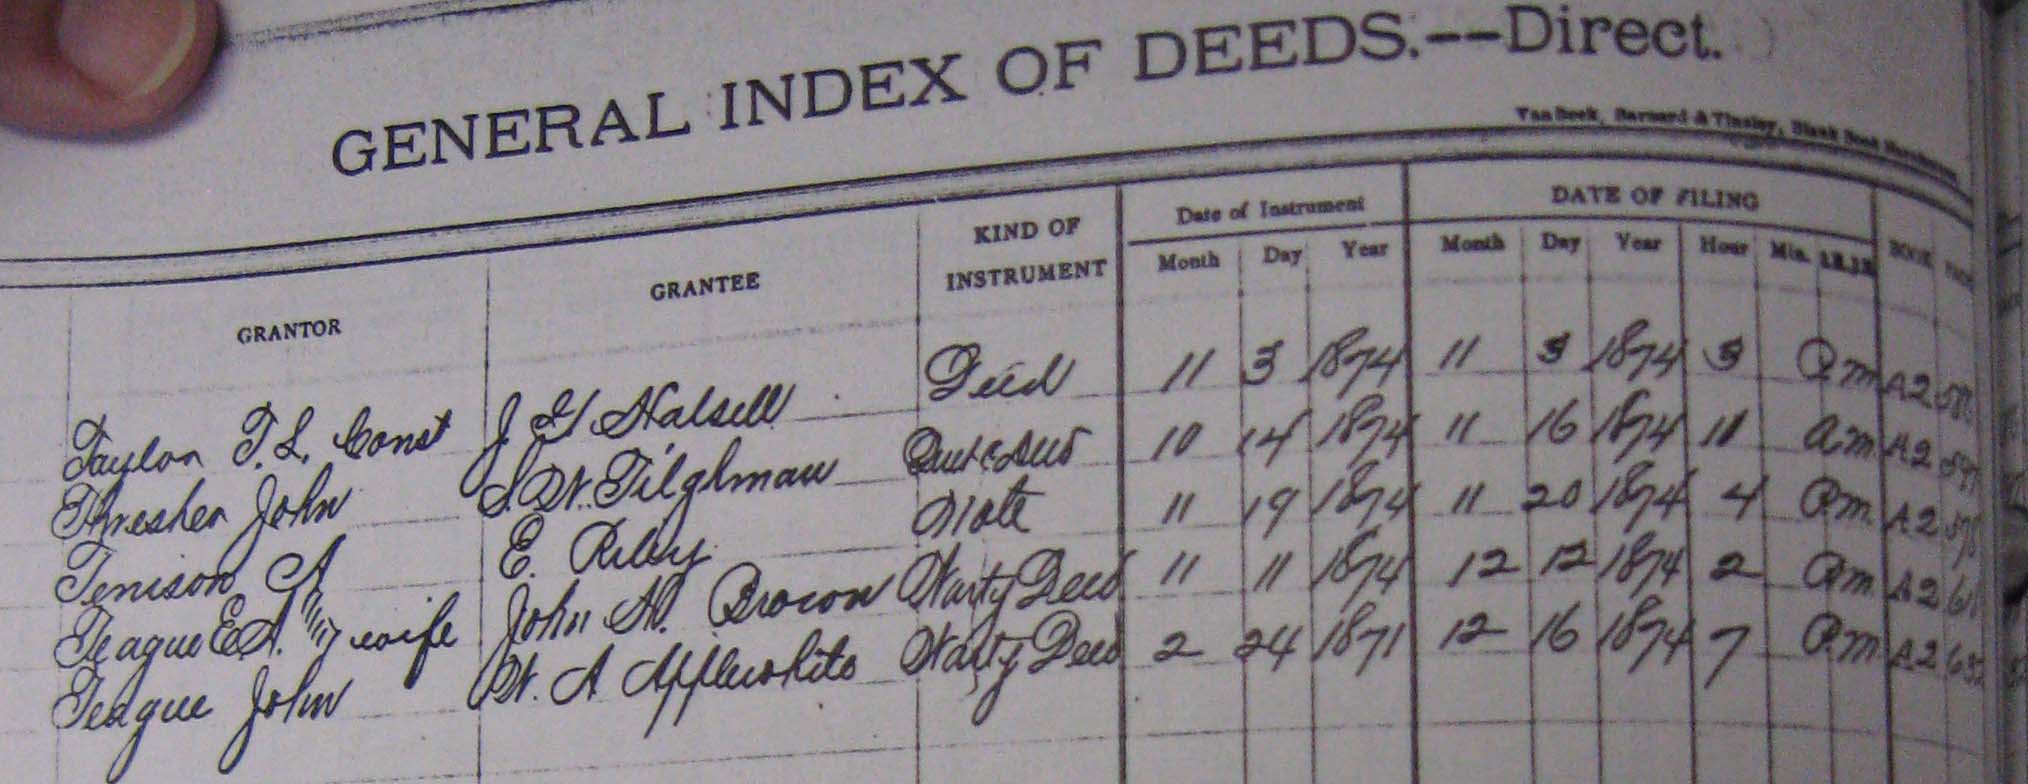 GENERAL INDEX OF DEEDS.--Direct.
VanBeek, Barnard & Tinsley, Blank Book
GRANTOR GRANTEE KIND OF INSTRUMENT Date of Instrument DATE OF FILING BOOK PAGE
Month Day Year Month Day Year Hour Min.
Taylor T. L. Const J H Halsell Deed 11 3 1874 11 3 1874 3 P m A2
Thresher John Tilghman 10 14 1874 11 16 1874 11 a m A2
Tenison A E. Riley Note 11 19 1874 11 20 1874 4 P m A2
Teague E A. & wife John H. Brown Warty Deed 11 11 1874 12 12 1874 2 P m A2
Teague John W. A Applewhite Warty Deed 2 24 1871 12 16 1874 7 P m A2